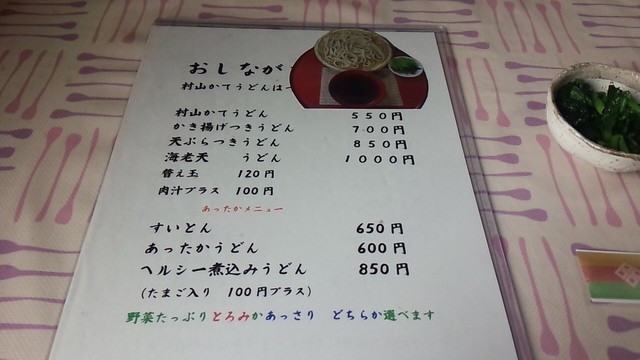 おしなが
村山かてうどんは
村山かてうどん 550円
かき揚げつきうどん 700円
天ぷらつきうどん 850円
海老天 うどん 1000円
替え玉 120円
肉汁プラス 100円
あったかメニュー
すいとん 650円
あったかうどん 600円
ヘルシー煮込みうどん 850円
(たまご入り 100円プラス)
野菜たっぷりとろみかあっさり どちらか選べます